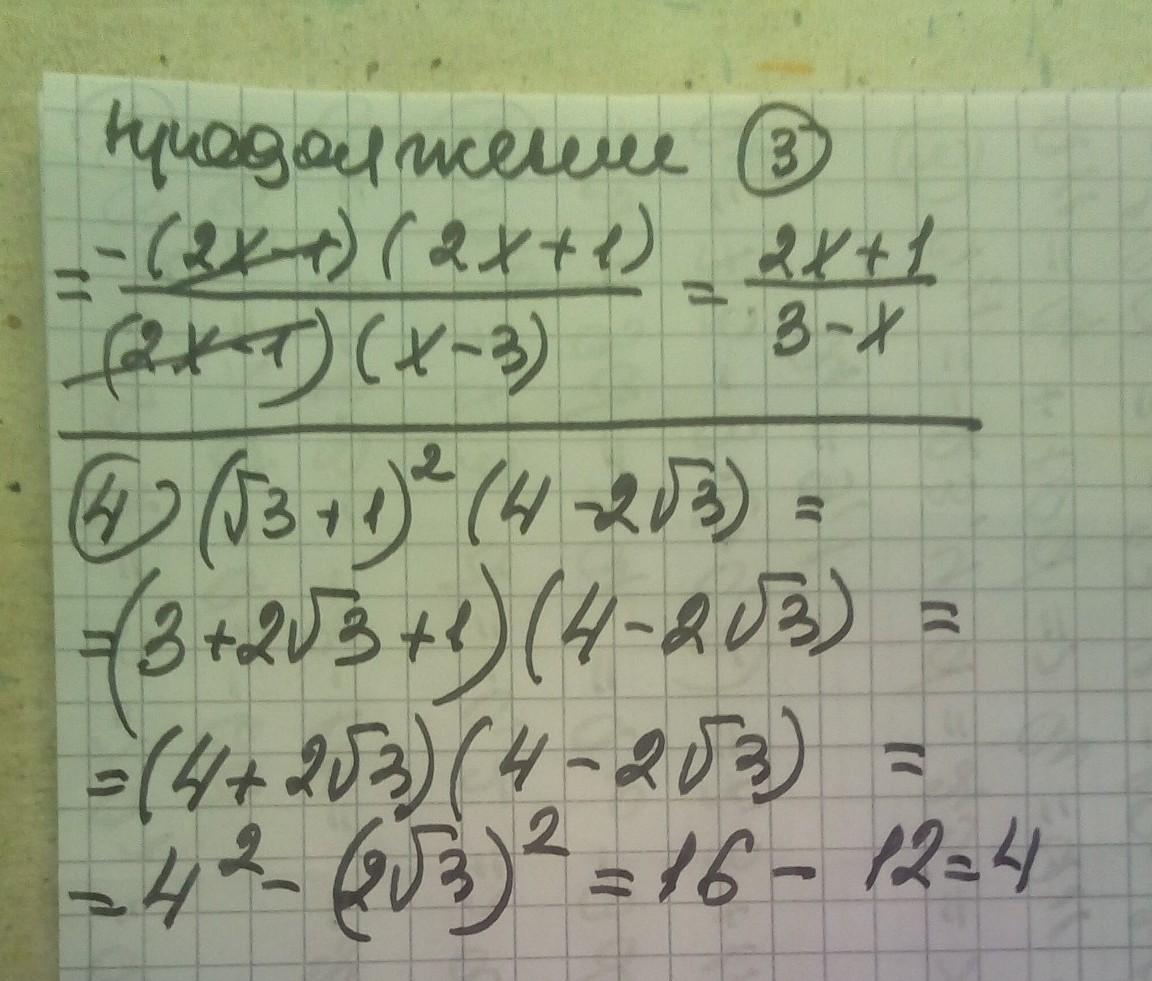 продолжение ③
= -(2x-1)(2x+1) / (2x-1)(x-3) = 2x+1 / 3-x
④ (√3+1)² (4-2√3) =
=(3+2√3+1)(4-2√3) =
=(4+2√3)(4-2√3) =
=4²-(2√3)² =16-12=4